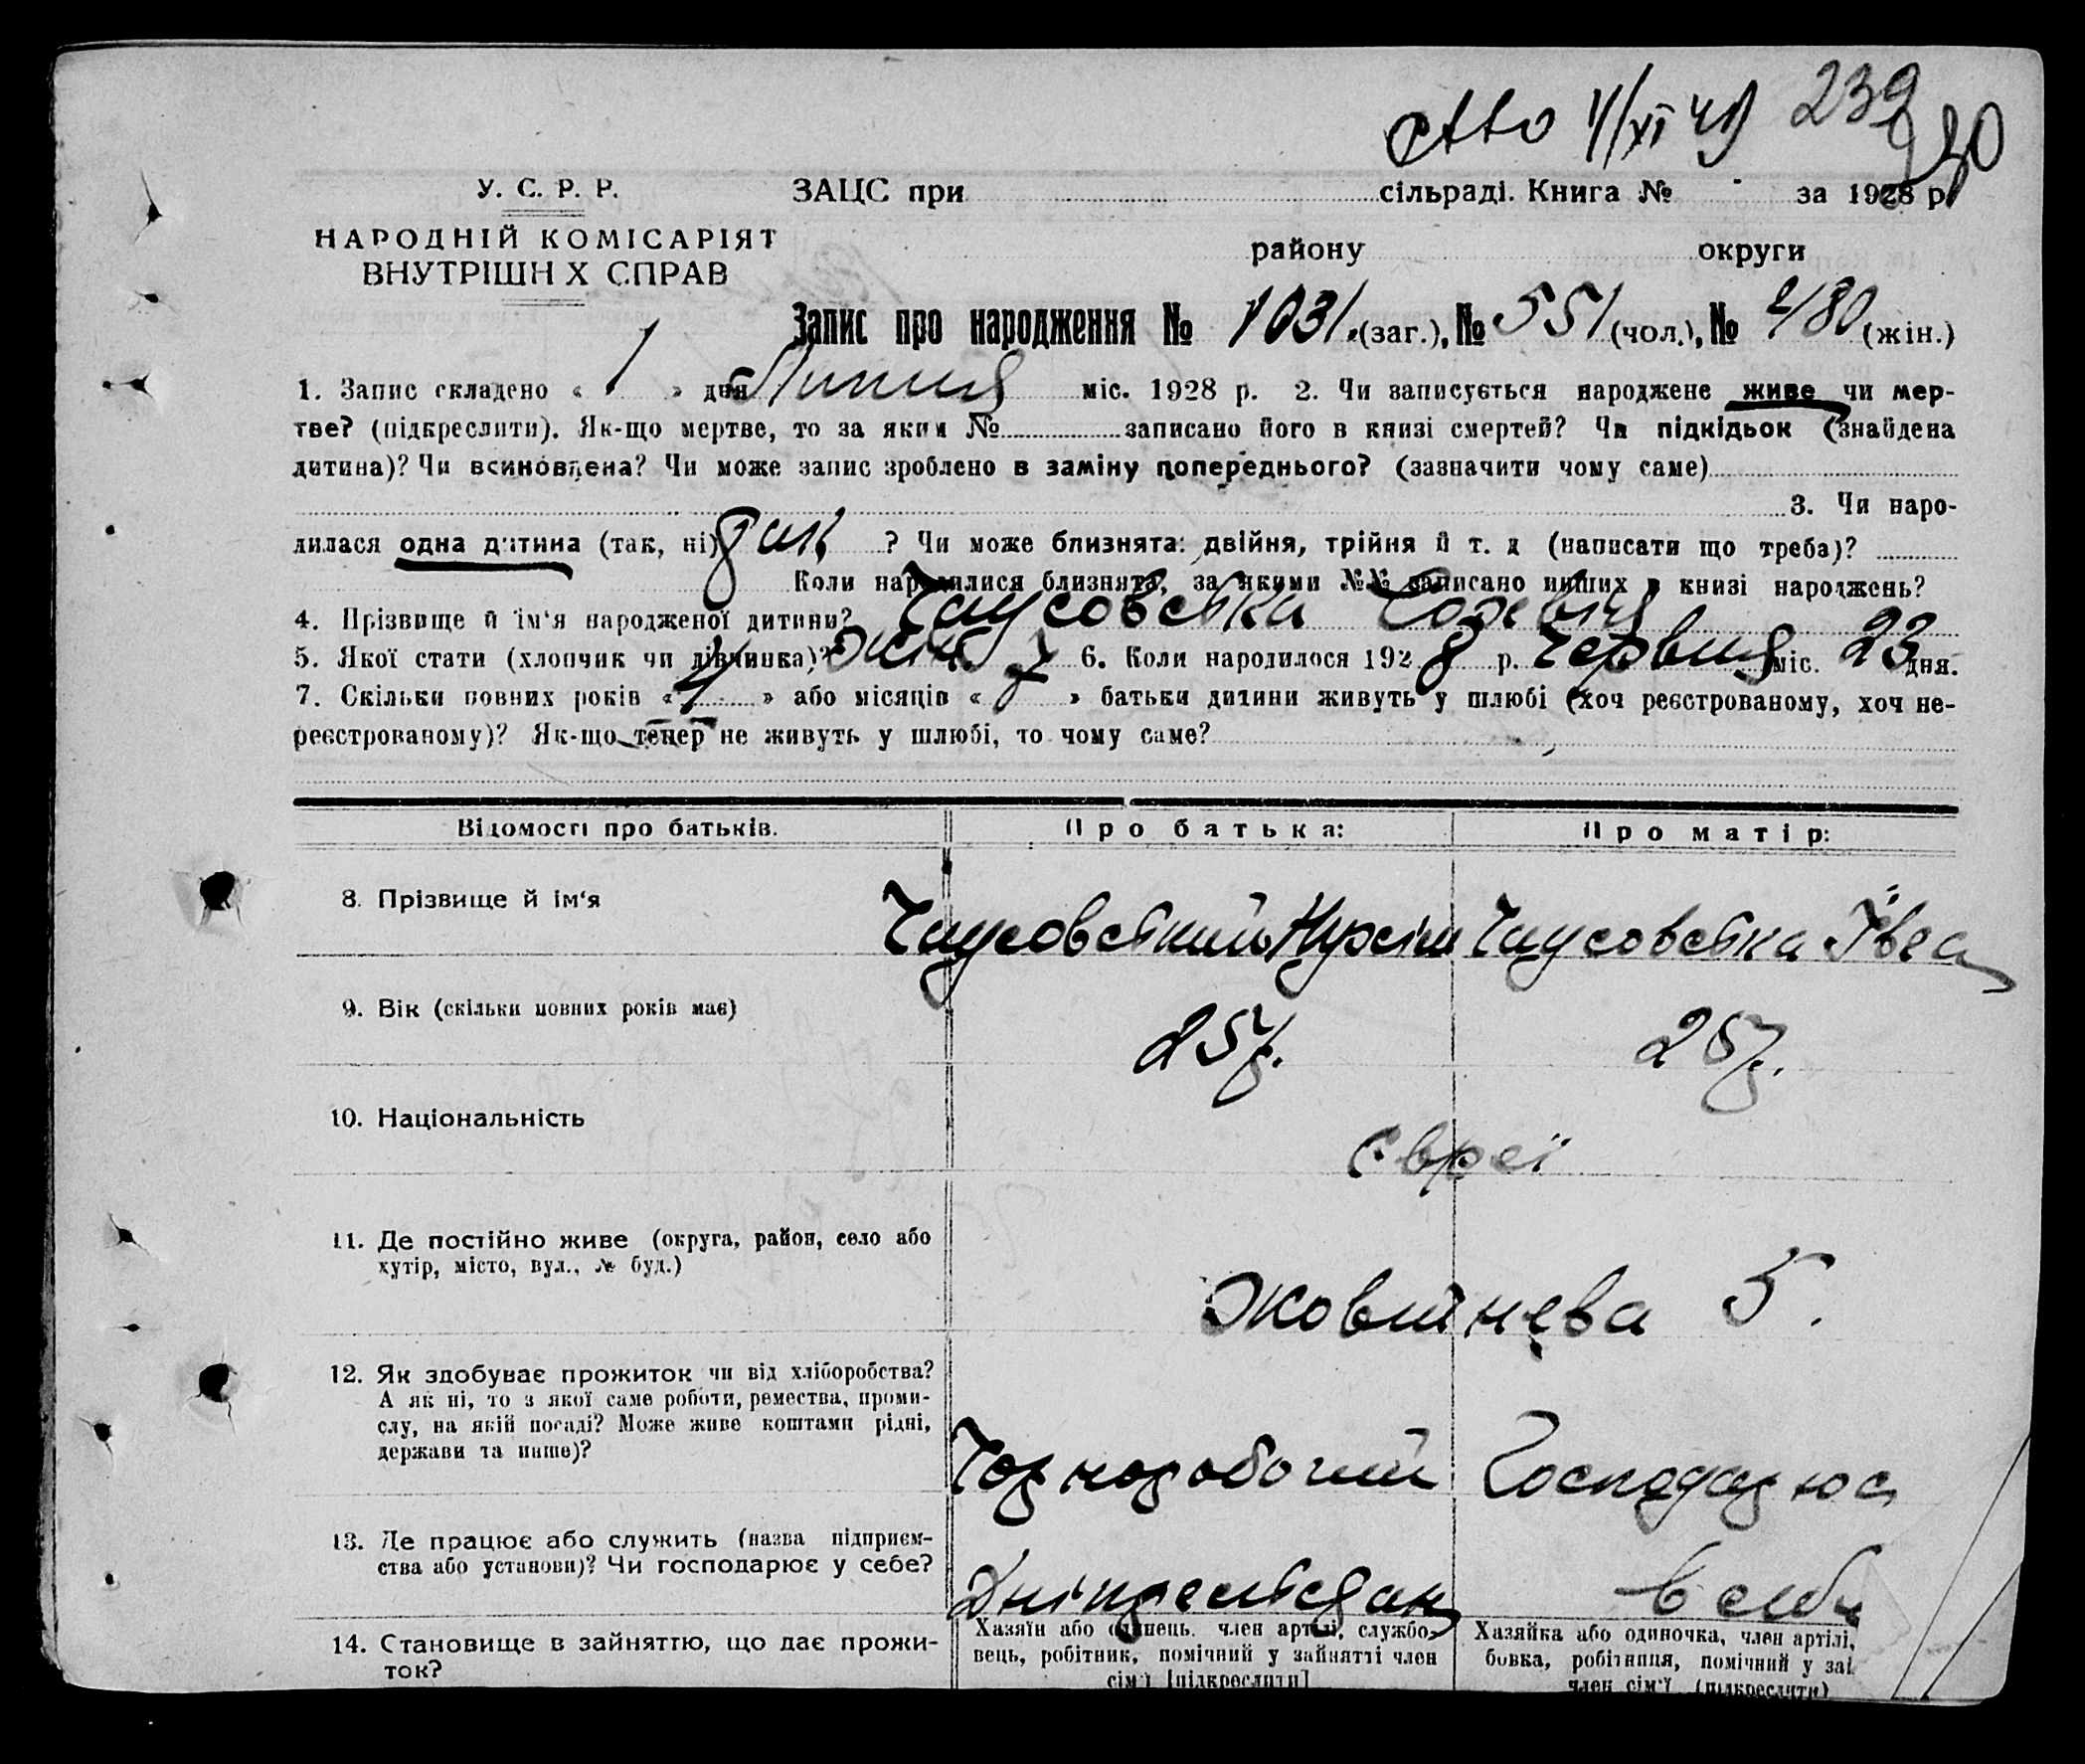 239
У. С. Р. Р.
ЗАЦС при сільраді. Книга № за 1928 р.
НАРОДНІЙ КОМІСАРІЯТ
ВНУТРІШН Х СПРАВ
району округи
Запис про народження № 1031 (заг.), № 551 (чол.), № 480 (жін.)
1. Запис складено « 1 » дня Липня міс. 1928 р. 2. Чи записується народжене живе чи мер-
тве? (підкреслити). Як-що мертве, то за яким № записано його в книзі смертей? Чи підкідьок (знайдена
дитина)? Чи всиновлена? Чи може запис зроблено в заміну попереднього? (зазначити чому саме)
3. Чи наро-
дилася одна дитина (так, ні) ? Чи може близнята: двійня, трійня й т. д (написати що треба)?
Коли народилися близнята, за якими №№ записано инших в книзі народжень?
4. Прізвище й ім'я народженої дитини? Чаусовська
5. Якої стати (хлопчик чи дівчинка)? жін. 6. Коли народилося 1928 р. Червня міс. 23 дня.
7. Скільки повних років « 1 » або місяців « » батьки дитини живуть у шлюбі (хоч реєстрованому, хоч не-
реєстрованому)? Як-що тепер не живуть у шлюбі, то чому саме?
Відомості про батьків. Про батька: Про матір:
8. Прізвище й ім'я Чаусовський Нухім Чаусовська
9. Вік (скільки повних років має) 25 р. 25 р.
10. Національність євреї
11. Де постійно живе (округа, район, село або
хутір, місто, вул., № буд.)
Жовтнева 5.
12. Як здобуває прожиток чи від хліборобства?
А як ні, то з якої саме роботи, ремества, проми-
слу, на якій посаді? Може живе коштами рідні,
держави та инше)?
Чорноробочий Господарює
13. Де працює або служить (назва підприєм-
ства або установи)? Чи господарює у себе?
в себе
14. Становище в зайняттю, що дає прожи-
ток?
Хазяїн або одинець, член артілі, службо-
вець, робітник, помічний у зайнятті член
сім'ї [підкреслити]
Хазяйка або одиночка, член артілі,
бовка, робітниця, помічний у заі
член сім'ї (підкреслити)